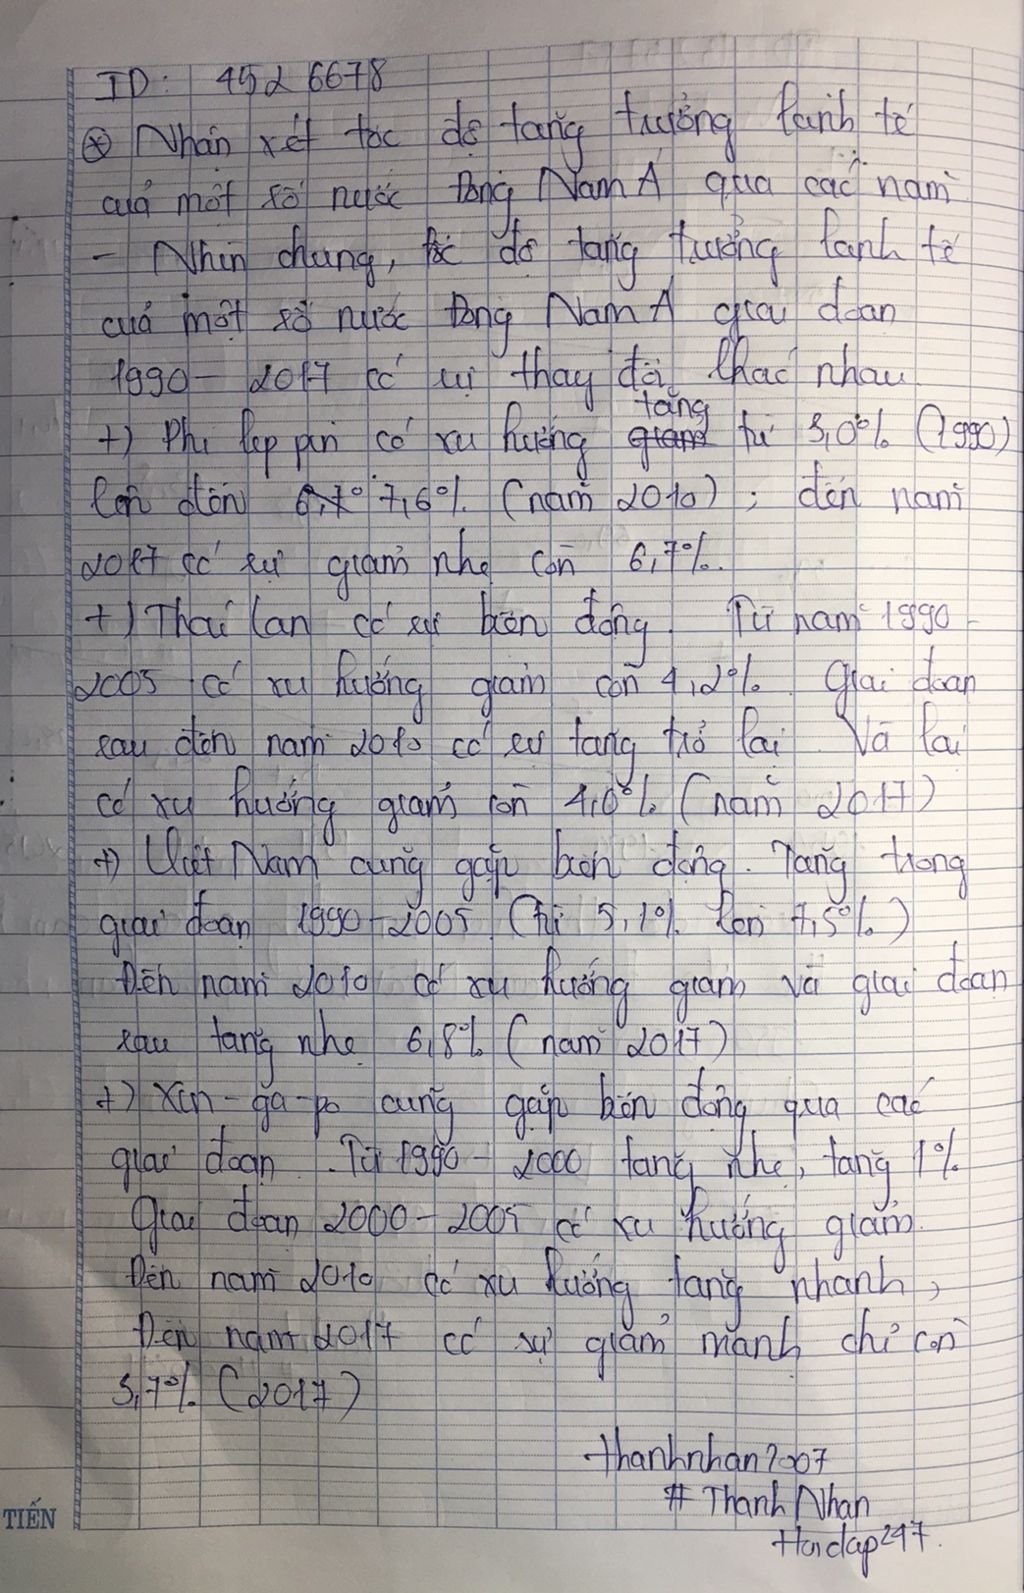 ID: 4526678
⊛ Nhận xét tốc độ tăng trưởng kinh tế
của một số nước Đông Nam Á qua các năm
- Nhìn chung, tốc độ tăng trưởng kinh tế
của một số nước Đông Nam Á giai đoạn
1990 - 2017 có sự thay đổi khác nhau
+) Phi lip pin có xu hướng tăng từ 3,0% (1990)
lên đến 7,6% (năm 2010) ; đến năm
2017 có sự giảm nhẹ còn 6,7%.
+) Thái Lan có sự biến động. Từ năm 1990 -
2005 có xu hướng giảm còn 4,2%. Giai đoạn
sau đến năm 2010 có sự tăng trở lại. Và lại
có xu hướng giảm còn 4,0% (năm 2017)
+) Việt Nam cũng gặp biến động. Tăng trong
giai đoạn 1990 - 2005 (từ 5,1% lên 7,5%)
Đến năm 2010 có xu hướng giảm và giai đoạn
sau tăng nhẹ 6,8% (năm 2017)
+) Xin-ga-po cũng gặp biến động qua các
giai đoạn. Từ 1990 - 2000 tăng nhẹ, tăng 1%
Giai đoạn 2000 - 2005 có xu hướng giảm.
Đến năm 2010 có xu hướng tăng nhanh,
Đến năm 2017 có sự giảm mạnh chỉ còn
3,7% (2017)
thanhnhan2007
# Thanh Nhan
Hoidap247.
TIẾN